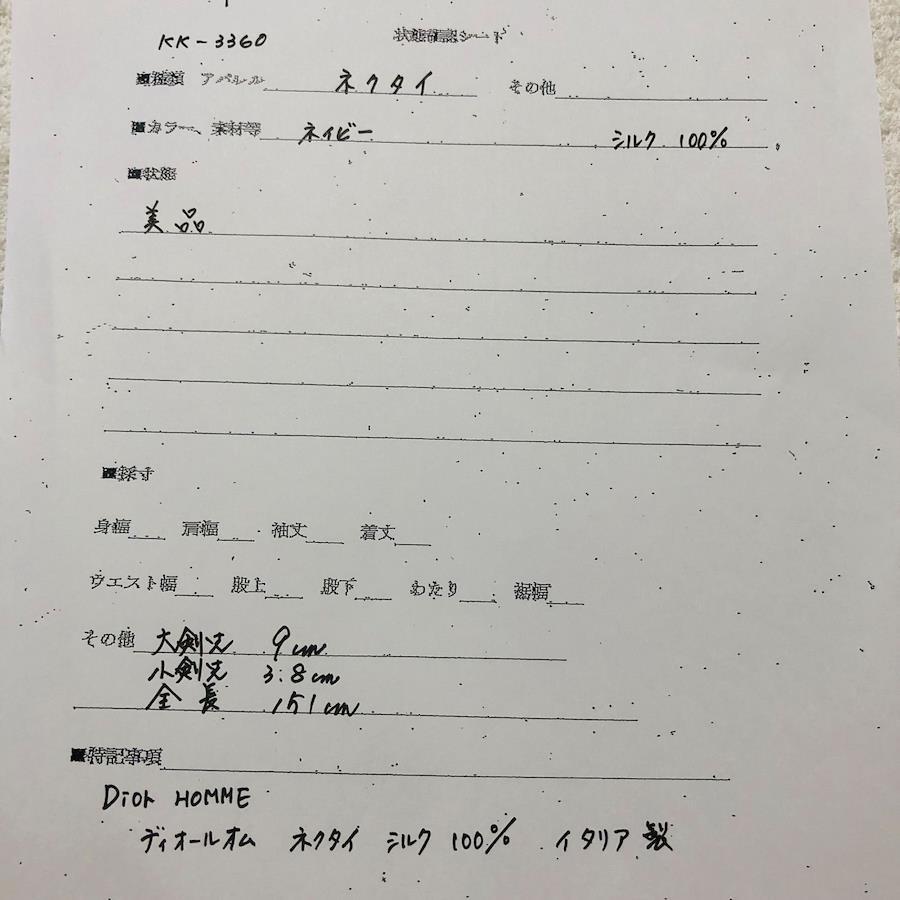 KK-3360
状態確認シート
■種類 アパレル ネクタイ その他
■カラー、素材等 ネイビー シルク 100%
■状態
美品
■採寸
身幅 肩幅 袖丈 着丈
ウエスト幅 股上 股下 わたり 裾幅
その他 大剣先 9cm
小剣先 3.8cm
全長 151cm
■特記事項
Dior HOMME
ディオールオム ネクタイ シルク 100% イタリア製